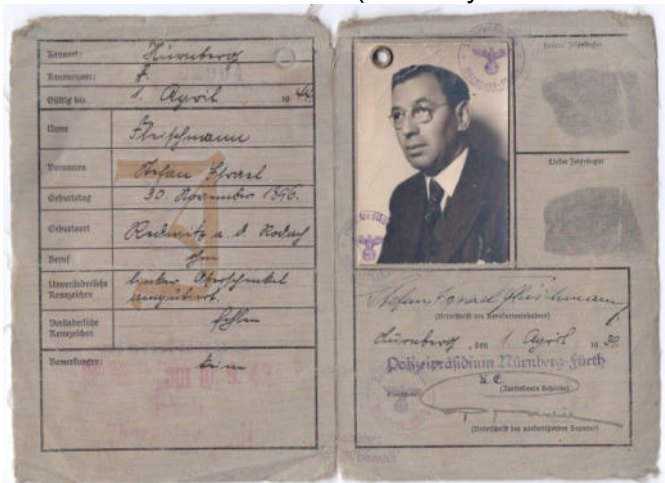 Kennort: Nürnberg
Kennummer: A
Gültig bis 1. April 1944
Name Fleischmann
Vornamen Stefan Israel
Geburtstag 30. November 1896.
Geburtsort Redwitz a. d. Rodach
Beruf ohne
Unveränderliche Kennzeichen linker Oberschenkel amputiert.
Veränderliche Kennzeichen fehlen
Bemerkungen: keine
J
Rechter Zeigefinger
Linker Zeigefinger
Stefan Israel Fleischmann
(Unterschrift des Kennkarteninhabers)
Nürnberg, den 1. April 1939.
Polizeipräsidium Nürnberg-Fürth
(Ausstellende Behörde)
(Unterschrift des ausfertigenden Beamten)